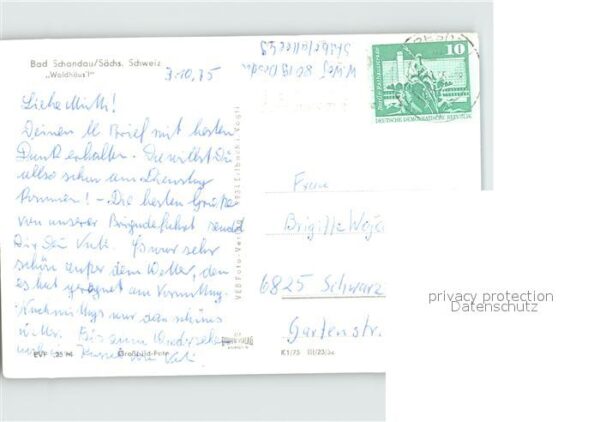 Bad Schandau/Sächs. Schweiz
„Waldhäus'l"
3.10.75
W. 8019 Dresden
10
DEUTSCHE DEMOKRATISCHE REPUBLIK
Liebe Mutti!
Deinen lb Brief mit besten
Dank erhalten. Du willst Du
also schon am Dienstag
kommen! – Die besten Grüße
von unserer Brigadefahrt sendet
Dir Dein Vati. Es war sehr
schön außer dem Wetter, denn
es hat geregnet am Vormittag.
Nachmittags war schönes
Bis zum Wiedersehen
Vati
VEB Foto-Verlag 9934 Erlbach i. Vogtl.
Frau
Brigitte
6825 Schwarz
Gartenstr.
EVF
Großbild-Foto
K 1/75
privacy protection
Datenschutz